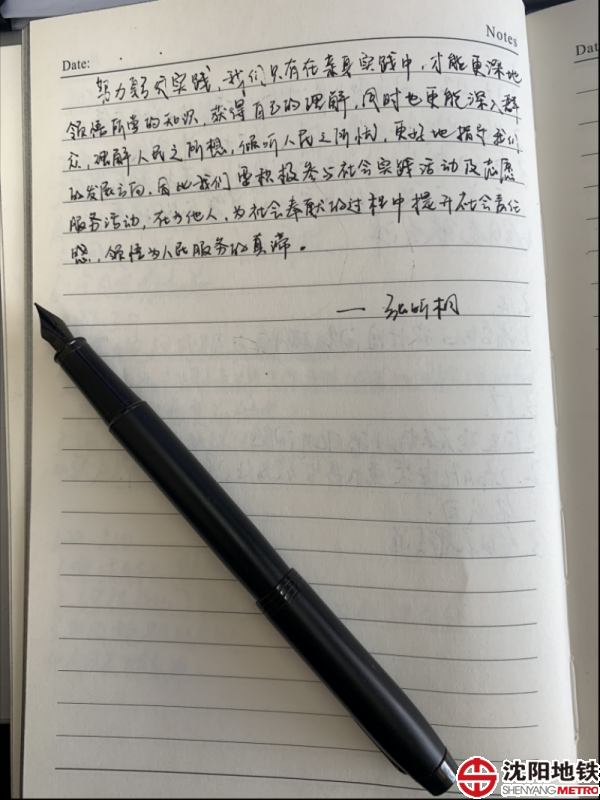 Notes
Date:
努力躬行实践,我们只有在亲身实践中,才能更深地
领悟所学的知识,获得自己的理解,同时也更能深入群
众,理解人民之所想,倾听人民之所忧,更好地指导我们
的发展方向,因此我们要积极参与社会实践活动及志愿
服务活动,在为他人,为社会奉献的过程中提升社会责任
感,领悟为人民服务的真谛。
— 张昕桐
Dat
沈阳地铁
SHENYANG METRO